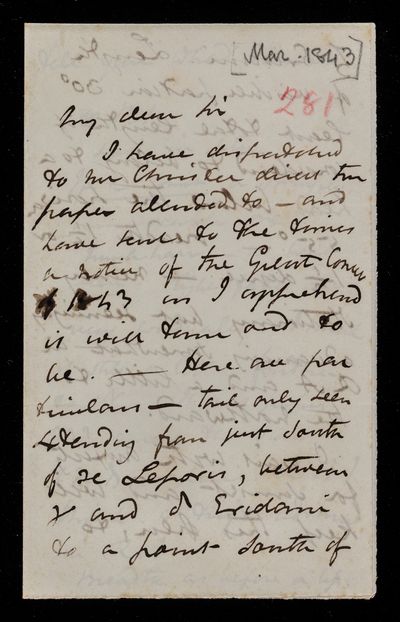 [Mar. 1843]
281
My dear Sir
I have dispatched
to Mr Christie direct the
paper alluded to — and
have sent to the Times
a notice of the Great Comet
of 1843 as I apprehend
it will turn out to
be. — Here are par
ticulars — tail only seen
extending from just South
of ϰ Leporis, between
γ and δ Eridani
to a point South of